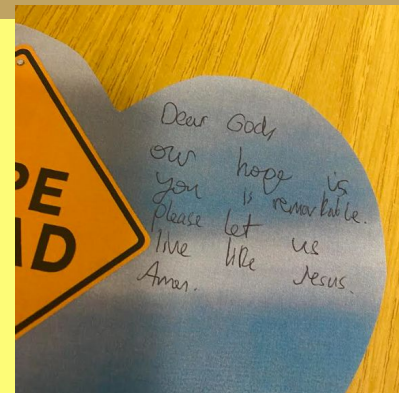 PE
AD
Dear God,
our hope is
you is remarkable.
please let us
live like Jesus.
Amen.